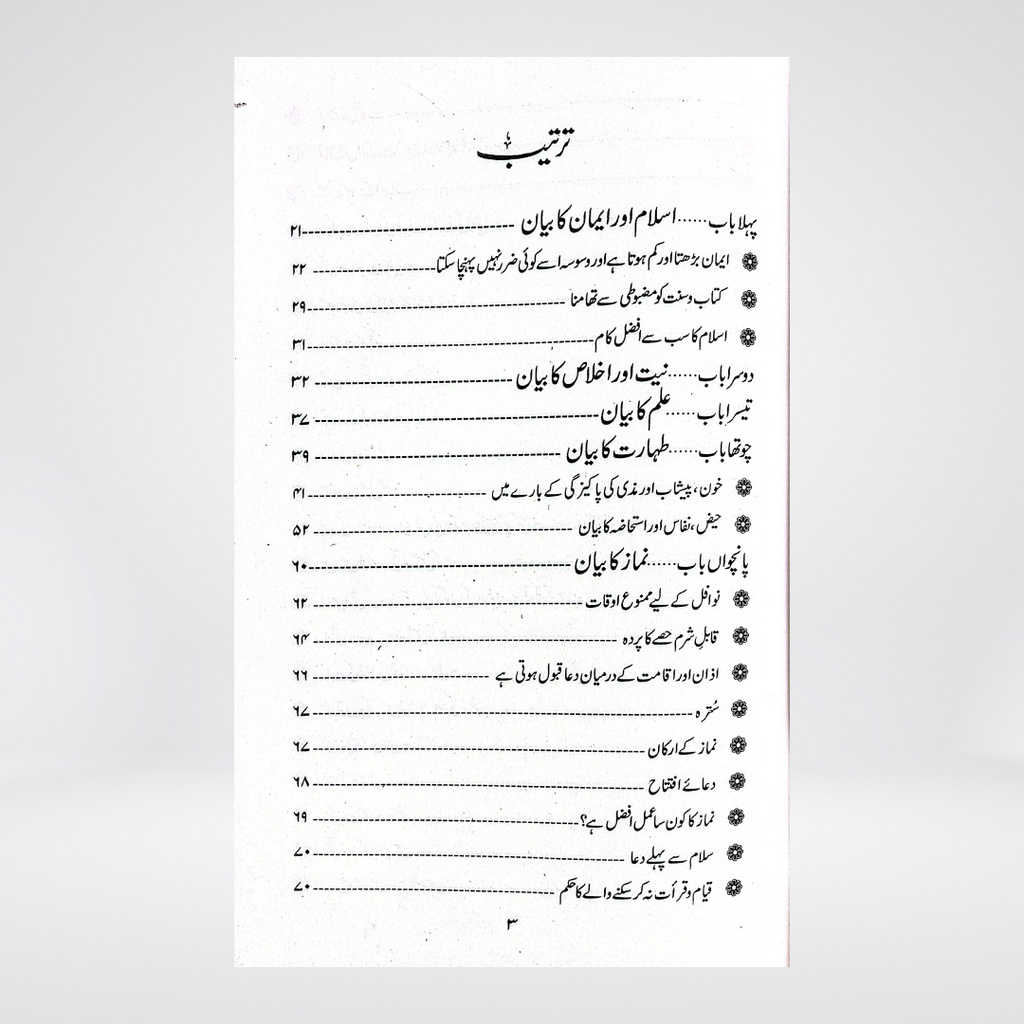 ترتیب
پہلا باب......اسلام اور ایمان کا بیان ۲۱
ایمان بڑھتا اور کم ہوتا ہے اور وسوسہ اسے کوئی ضرر نہیں پہنچا سکتا ۲۲
کتاب و سنت کو مضبوطی سے تھامنا ۲۹
اسلام کا سب سے افضل کام ۳۱
دوسرا باب......نیت اور اخلاص کا بیان ۳۲
تیسرا باب......علم کا بیان ۳۷
چوتھا باب......طہارت کا بیان ۳۹
خون، پیشاب اور مذی کی پاکیزگی کے بارے میں ۴۱
حیض، نفاس اور استحاضہ کا بیان ۵۲
پانچواں باب......نماز کا بیان ۶۰
نوافل کے لیے ممنوع اوقات ۶۲
قابلِ شرم حصے کا پردہ ۶۴
اذان اور اقامت کے درمیان دعا قبول ہوتی ہے ۶۶
سُترہ ۶۷
نماز کے ارکان ۶۷
دعائے افتتاح ۶۸
نماز کا کون سا عمل افضل ہے؟ ۶۹
سلام سے پہلے دعا ۷۰
قیام و قرأت نہ کر سکنے والے کا حکم ۷۰
۳